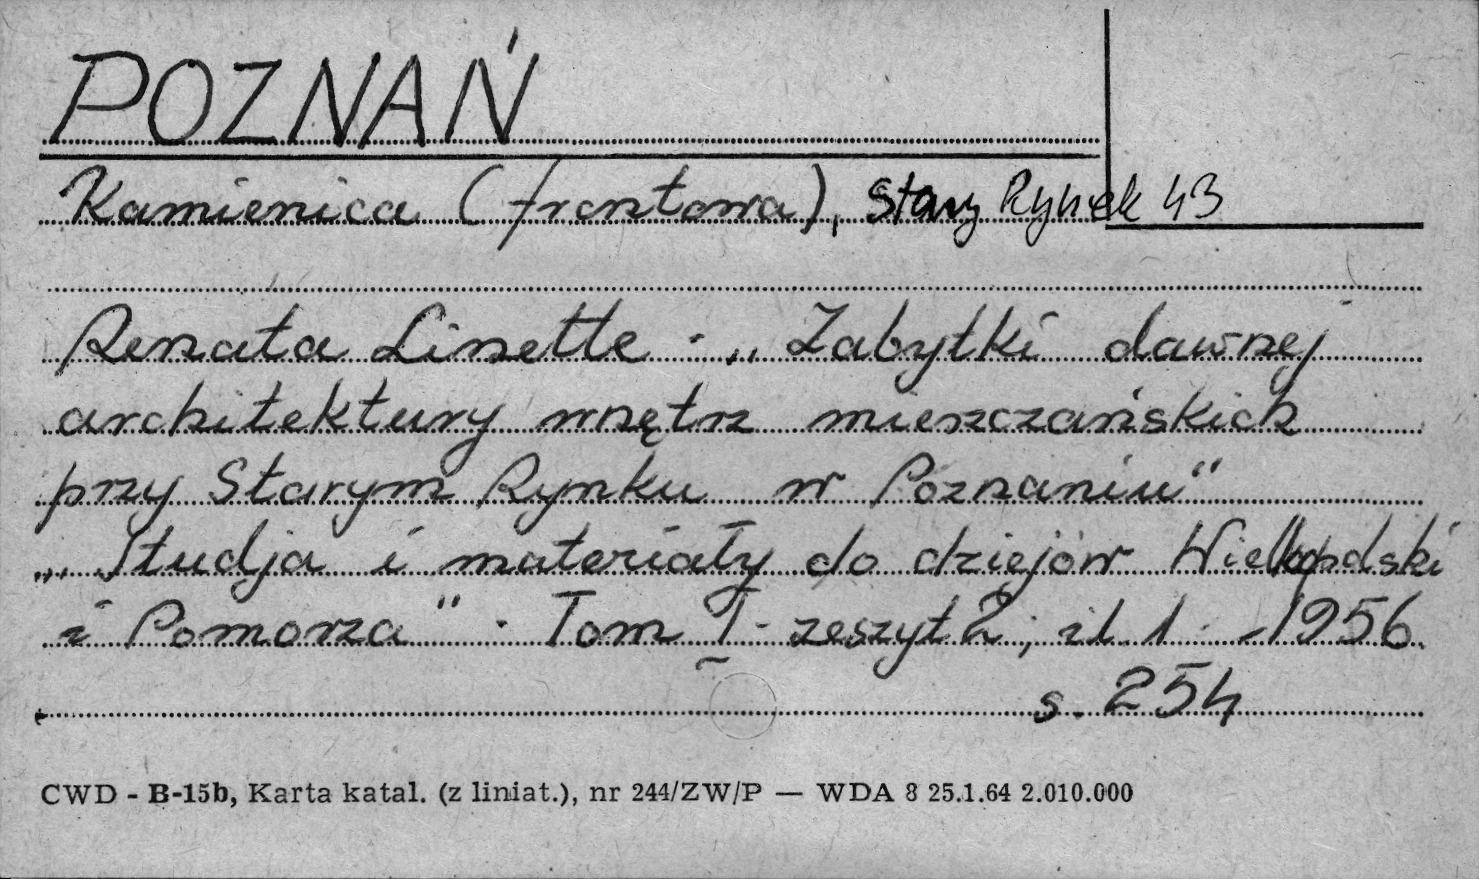 POZNAŃ
Kamienica (frontowa), Stary Rynek 43
Renata Linette · „Zabytki dawnej
architektury wnętrz mieszczańskich
przy Starym Rynku w Poznaniu"
„Studja i materiały do dziejów Wielkopolski
i Pomorza" · Tom I - zeszyt 2; il 1 - 1956.
s. 254
CWD - B-15b, Karta katal. (z liniat.), nr 244/ZW/P — WDA 8 25.1.64 2.010.000